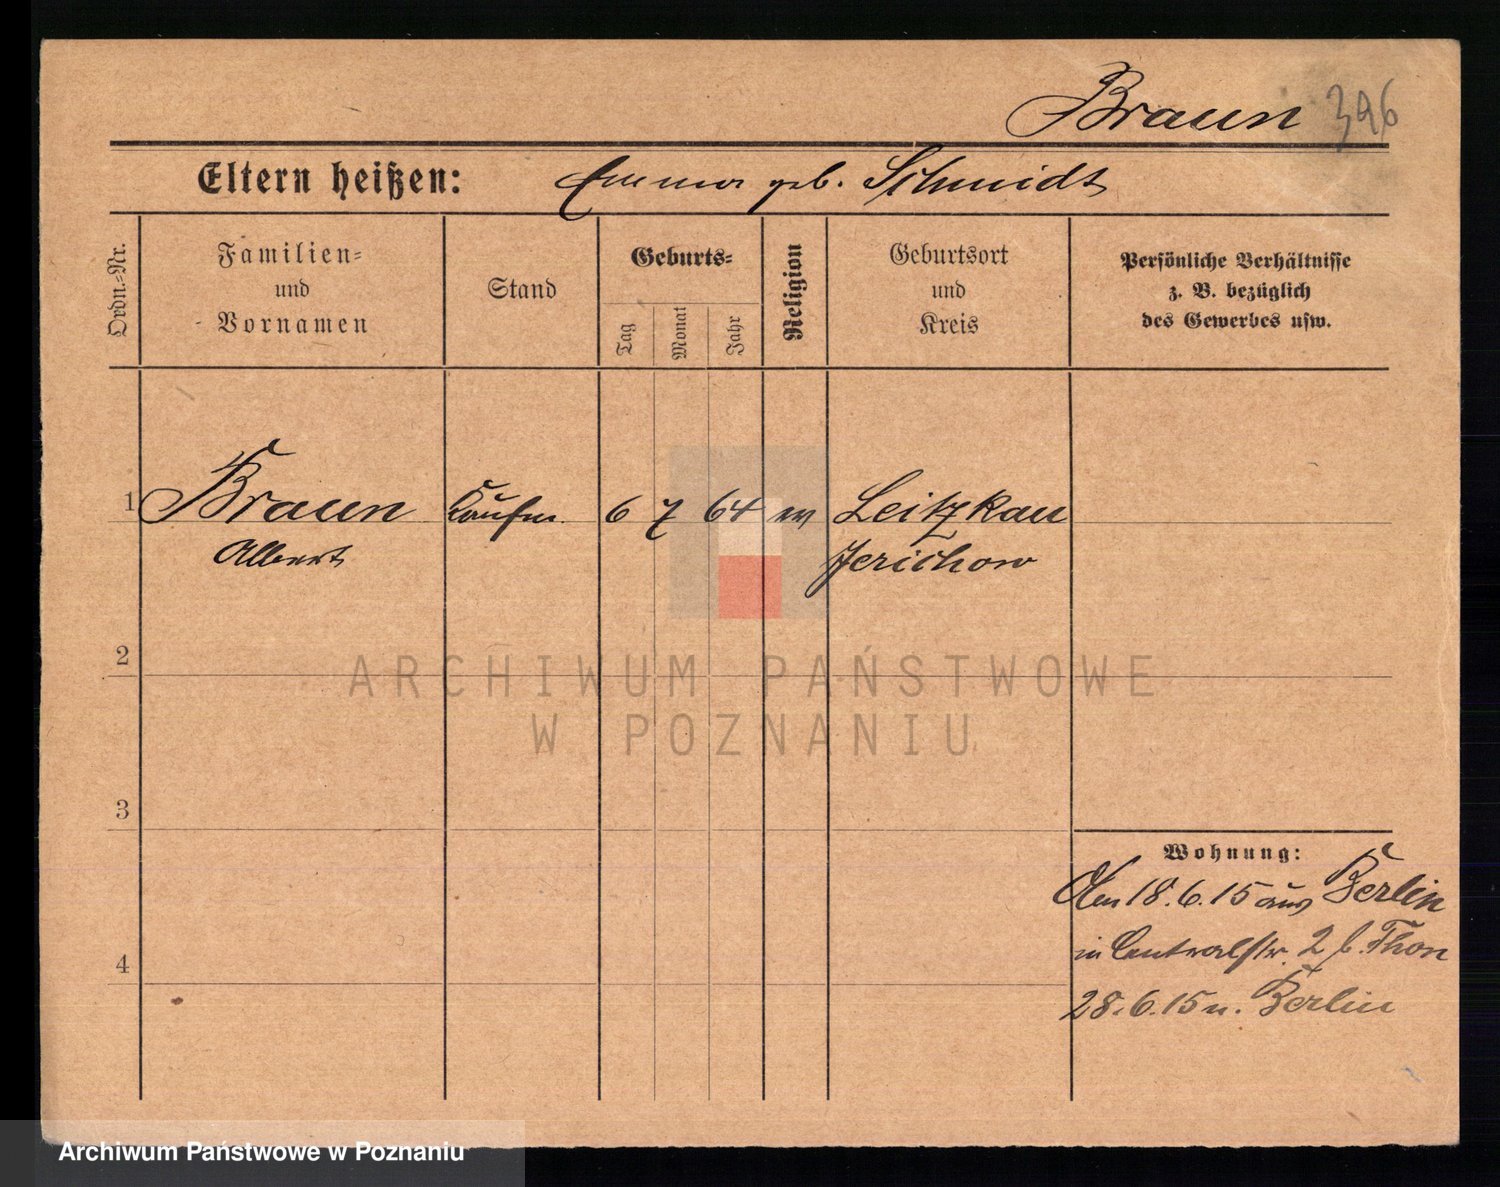 Braun 396
Eltern heißen: Emma geb. Schmidt
Ordn.-Nr.
Familien-
und
Vornamen
Stand
Geburts-
Tag
Monat
Jahr
Religion
Geburtsort
und
Kreis
Persönliche Verhältnisse
z. B. bezüglich
des Gewerbes usw.
1 Braun Kaufm. 6 7 64 Leitzkau
Albert Jerichow
2
ARCHIWUM PAŃSTWOWE
W POZNANIU
3
Wohnung:
Den 18.6.15 aus Berlin
in Centralstr. 2 b. Thon
4
28.6.15 n. Berlin
Archiwum Państwowe w Poznaniu